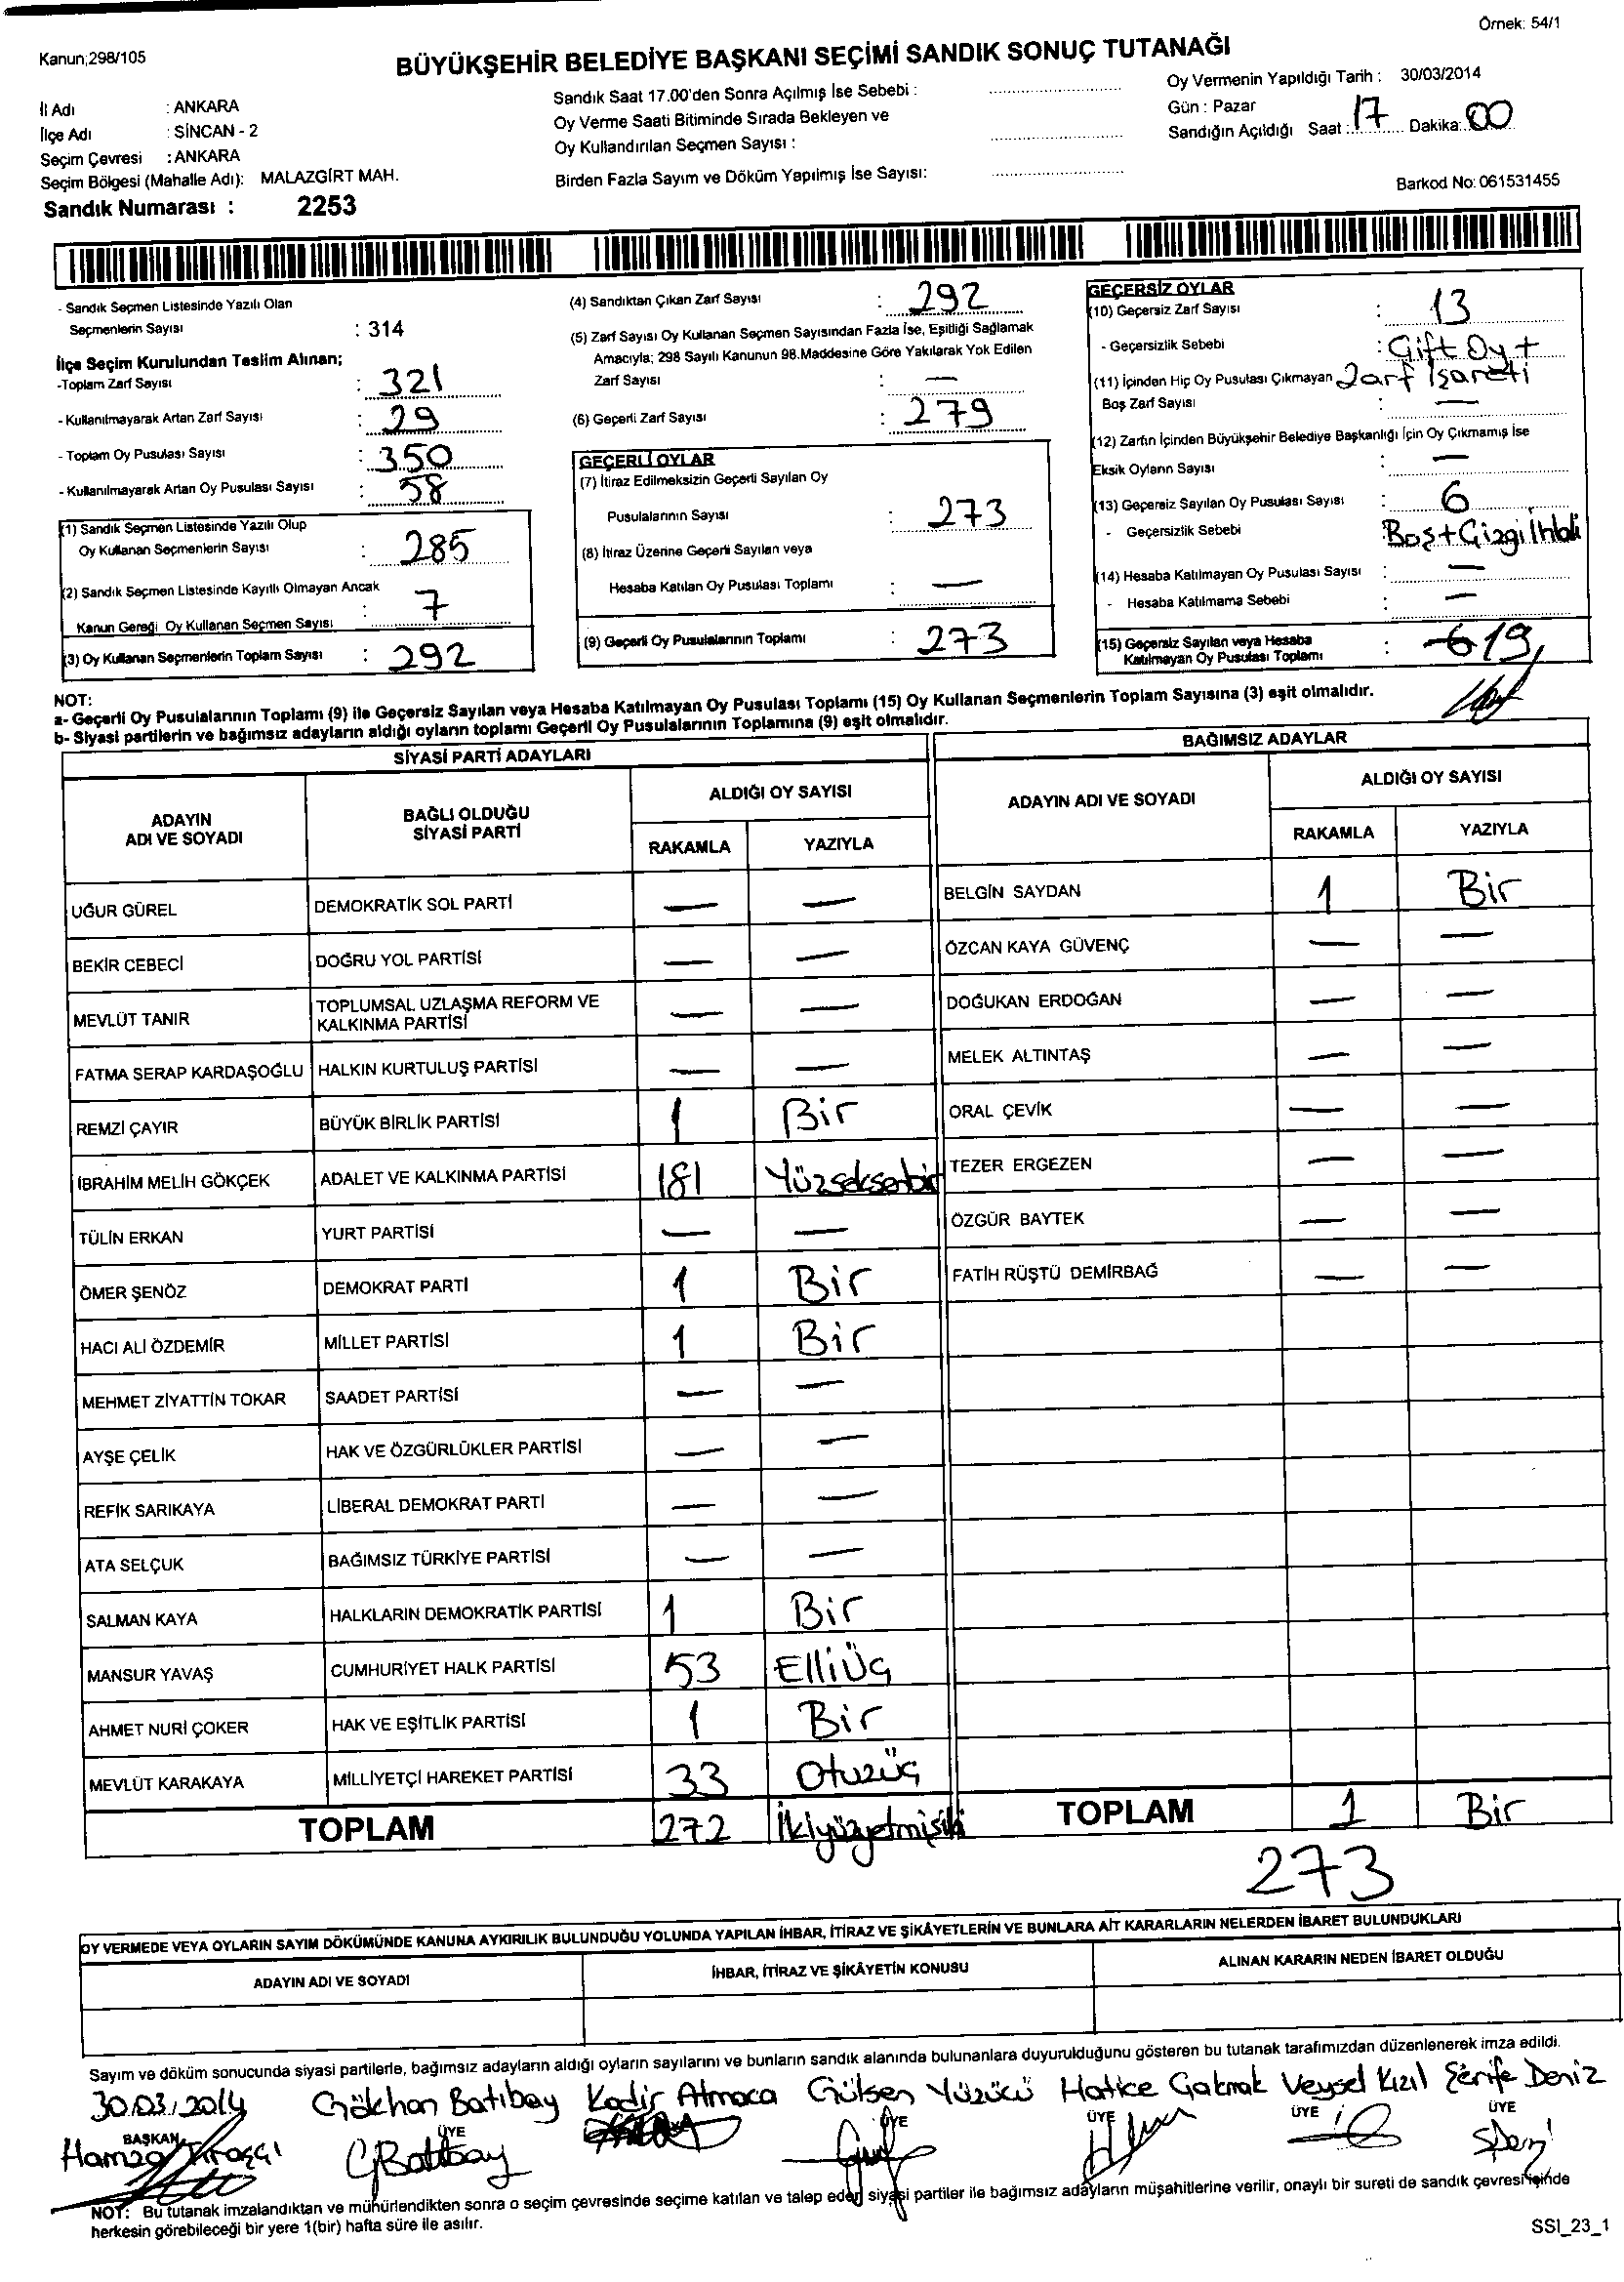 Örnek: 54/1
Kanun;298/105
BÜYÜKŞEHİR BELEDİYE BAŞKANI SEÇİMİ SANDIK SONUÇ TUTANAĞI
İl Adı : ANKARA
İlçe Adı : SİNCAN - 2
Seçim Çevresi : ANKARA
Seçim Bölgesi (Mahalle Adı): MALAZGİRT MAH.
Sandık Numarası : 2253
Sandık Saat 17.00'den Sonra Açılmış İse Sebebi :
Oy Verme Saati Bitiminde Sırada Bekleyen ve
Oy Kullandırılan Seçmen Sayısı :
Birden Fazla Sayım ve Döküm Yapılmış İse Sayısı:
Oy Vermenin Yapıldığı Tarih : 30/03/2014
Gün : Pazar
Sandığın Açıldığı Saat : 17 Dakika: 00
Barkod No: 061531455
- Sandık Seçmen Listesinde Yazılı Olan
Seçmenlerin Sayısı : 314
İlçe Seçim Kurulundan Teslim Alınan;
-Toplam Zarf Sayısı : 321
- Kullanılmayarak Artan Zarf Sayısı : 29
- Toplam Oy Pusulası Sayısı : 350
- Kullanılmayarak Artan Oy Pusulası Sayısı : 58
(1) Sandık Seçmen Listesinde Yazılı Olup
Oy Kullanan Seçmenlerin Sayısı : 285
(2) Sandık Seçmen Listesinde Kayıtlı Olmayan Ancak
Kanun Gereği Oy Kullanan Seçmen Sayısı : 7
(3) Oy Kullanan Seçmenlerin Toplam Sayısı : 292
(4) Sandıktan Çıkan Zarf Sayısı : 292
(5) Zarf Sayısı Oy Kullanan Seçmen Sayısından Fazla İse, Eşitliği Sağlamak
Amacıyla; 298 Sayılı Kanunun 98.Maddesine Göre Yakılarak Yok Edilen
Zarf Sayısı : —
(6) Geçerli Zarf Sayısı : 279
GEÇERLİ OYLAR
(7) İtiraz Edilmeksizin Geçerli Sayılan Oy
Pusulalarının Sayısı : 273
(8) İtiraz Üzerine Geçerli Sayılan veya
Hesaba Katılan Oy Pusulası Toplamı : —
(9) Geçerli Oy Pusulalarının Toplamı : 273
GEÇERSİZ OYLAR
(10) Geçersiz Zarf Sayısı : 13
- Geçersizlik Sebebi : Çift Oy +
(11) İçinden Hiç Oy Pusulası Çıkmayan Zarf İşareti
Boş Zarf Sayısı : —
(12) Zarfın İçinden Büyükşehir Belediye Başkanlığı İçin Oy Çıkmamış İse
Eksik Oyların Sayısı : —
(13) Geçersiz Sayılan Oy Pusulası Sayısı : 6
- Geçersizlik Sebebi : Boş+Çizgi İhlali
(14) Hesaba Katılmayan Oy Pusulası Sayısı : —
- Hesaba Katılmama Sebebi : —
(15) Geçersiz Sayılan veya Hesaba
Katılmayan Oy Pusulası Toplamı : 6 19
NOT:
a- Geçerli Oy Pusulalarının Toplamı (9) ile Geçersiz Sayılan veya Hesaba Katılmayan Oy Pusulası Toplamı (15) Oy Kullanan Seçmenlerin Toplam Sayısına (3) eşit olmalıdır.
b- Siyasi partilerin ve bağımsız adayların aldığı oyların toplamı Geçerli Oy Pusulalarının Toplamına (9) eşit olmalıdır.
SİYASİ PARTİ ADAYLARI
ADAYIN ADI VE SOYADI BAĞLI OLDUĞU SİYASİ PARTİ ALDIĞI OY SAYISI
RAKAMLA YAZIYLA
UĞUR GÜREL DEMOKRATİK SOL PARTİ — —
BEKİR CEBECİ DOĞRU YOL PARTİSİ — —
MEVLÜT TANIR TOPLUMSAL UZLAŞMA REFORM VE KALKINMA PARTİSİ — —
FATMA SERAP KARDAŞOĞLU HALKIN KURTULUŞ PARTİSİ — —
REMZİ ÇAYIR BÜYÜK BİRLİK PARTİSİ 1 Bir
İBRAHİM MELİH GÖKÇEK ADALET VE KALKINMA PARTİSİ 181 Yüzseksenbir
TÜLİN ERKAN YURT PARTİSİ — —
ÖMER ŞENÖZ DEMOKRAT PARTİ 1 Bir
HACI ALİ ÖZDEMİR MİLLET PARTİSİ 1 Bir
MEHMET ZİYATTİN TOKAR SAADET PARTİSİ — —
AYŞE ÇELİK HAK VE ÖZGÜRLÜKLER PARTİSİ — —
REFİK SARIKAYA LİBERAL DEMOKRAT PARTİ — —
ATA SELÇUK BAĞIMSIZ TÜRKİYE PARTİSİ — —
SALMAN KAYA HALKLARIN DEMOKRATİK PARTİSİ 1 Bir
MANSUR YAVAŞ CUMHURİYET HALK PARTİSİ 53 Elliüç
AHMET NURİ ÇOKER HAK VE EŞİTLİK PARTİSİ 1 Bir
MEVLÜT KARAKAYA MİLLİYETÇİ HAREKET PARTİSİ 33 Otuzüç
TOPLAM 272 İkiyüzyetmişiki
BAĞIMSIZ ADAYLAR
ADAYIN ADI VE SOYADI ALDIĞI OY SAYISI
RAKAMLA YAZIYLA
BELGİN SAYDAN 1 Bir
ÖZCAN KAYA GÜVENÇ — —
DOĞUKAN ERDOĞAN — —
MELEK ALTINTAŞ — —
ORAL ÇEVİK — —
TEZER ERGEZEN — —
ÖZGÜR BAYTEK — —
FATİH RÜŞTÜ DEMİRBAĞ — —
TOPLAM 1 Bir
273
OY VERMEDE VEYA OYLARIN SAYIM DÖKÜMÜNDE KANUNA AYKIRILIK BULUNDUĞU YOLUNDA YAPILAN İHBAR, İTİRAZ VE ŞİKÂYETLERİN VE BUNLARA AİT KARARLARIN NELERDEN İBARET BULUNDUKLARI
ADAYIN ADI VE SOYADI İHBAR, İTİRAZ VE ŞİKÂYETİN KONUSU ALINAN KARARIN NEDEN İBARET OLDUĞU
Sayım ve döküm sonucunda siyasi partilerle, bağımsız adayların aldığı oyların sayılarını ve bunların sandık alanında bulunanlara duyurulduğunu gösteren bu tutanak tarafımızdan düzenlenerek imza edildi.
30.03.2014 Gökhan Batıbay Kadir Atmaca Gülsen Yüzücü Hatice Çakmak Veysel Kızıl Şerife Deniz
BAŞKAN ÜYE ÜYE ÜYE ÜYE ÜYE
Hamza
GBatıbay
NOT: Bu tutanak imzalandıktan ve mühürlendikten sonra o seçim çevresinde seçime katılan ve talep eden siyasi partiler ile bağımsız adayların müşahitlerine verilir, onaylı bir sureti de sandık çevresi içinde
herkesin görebileceği bir yere 1(bir) hafta süre ile asılır.
SSI_23_1